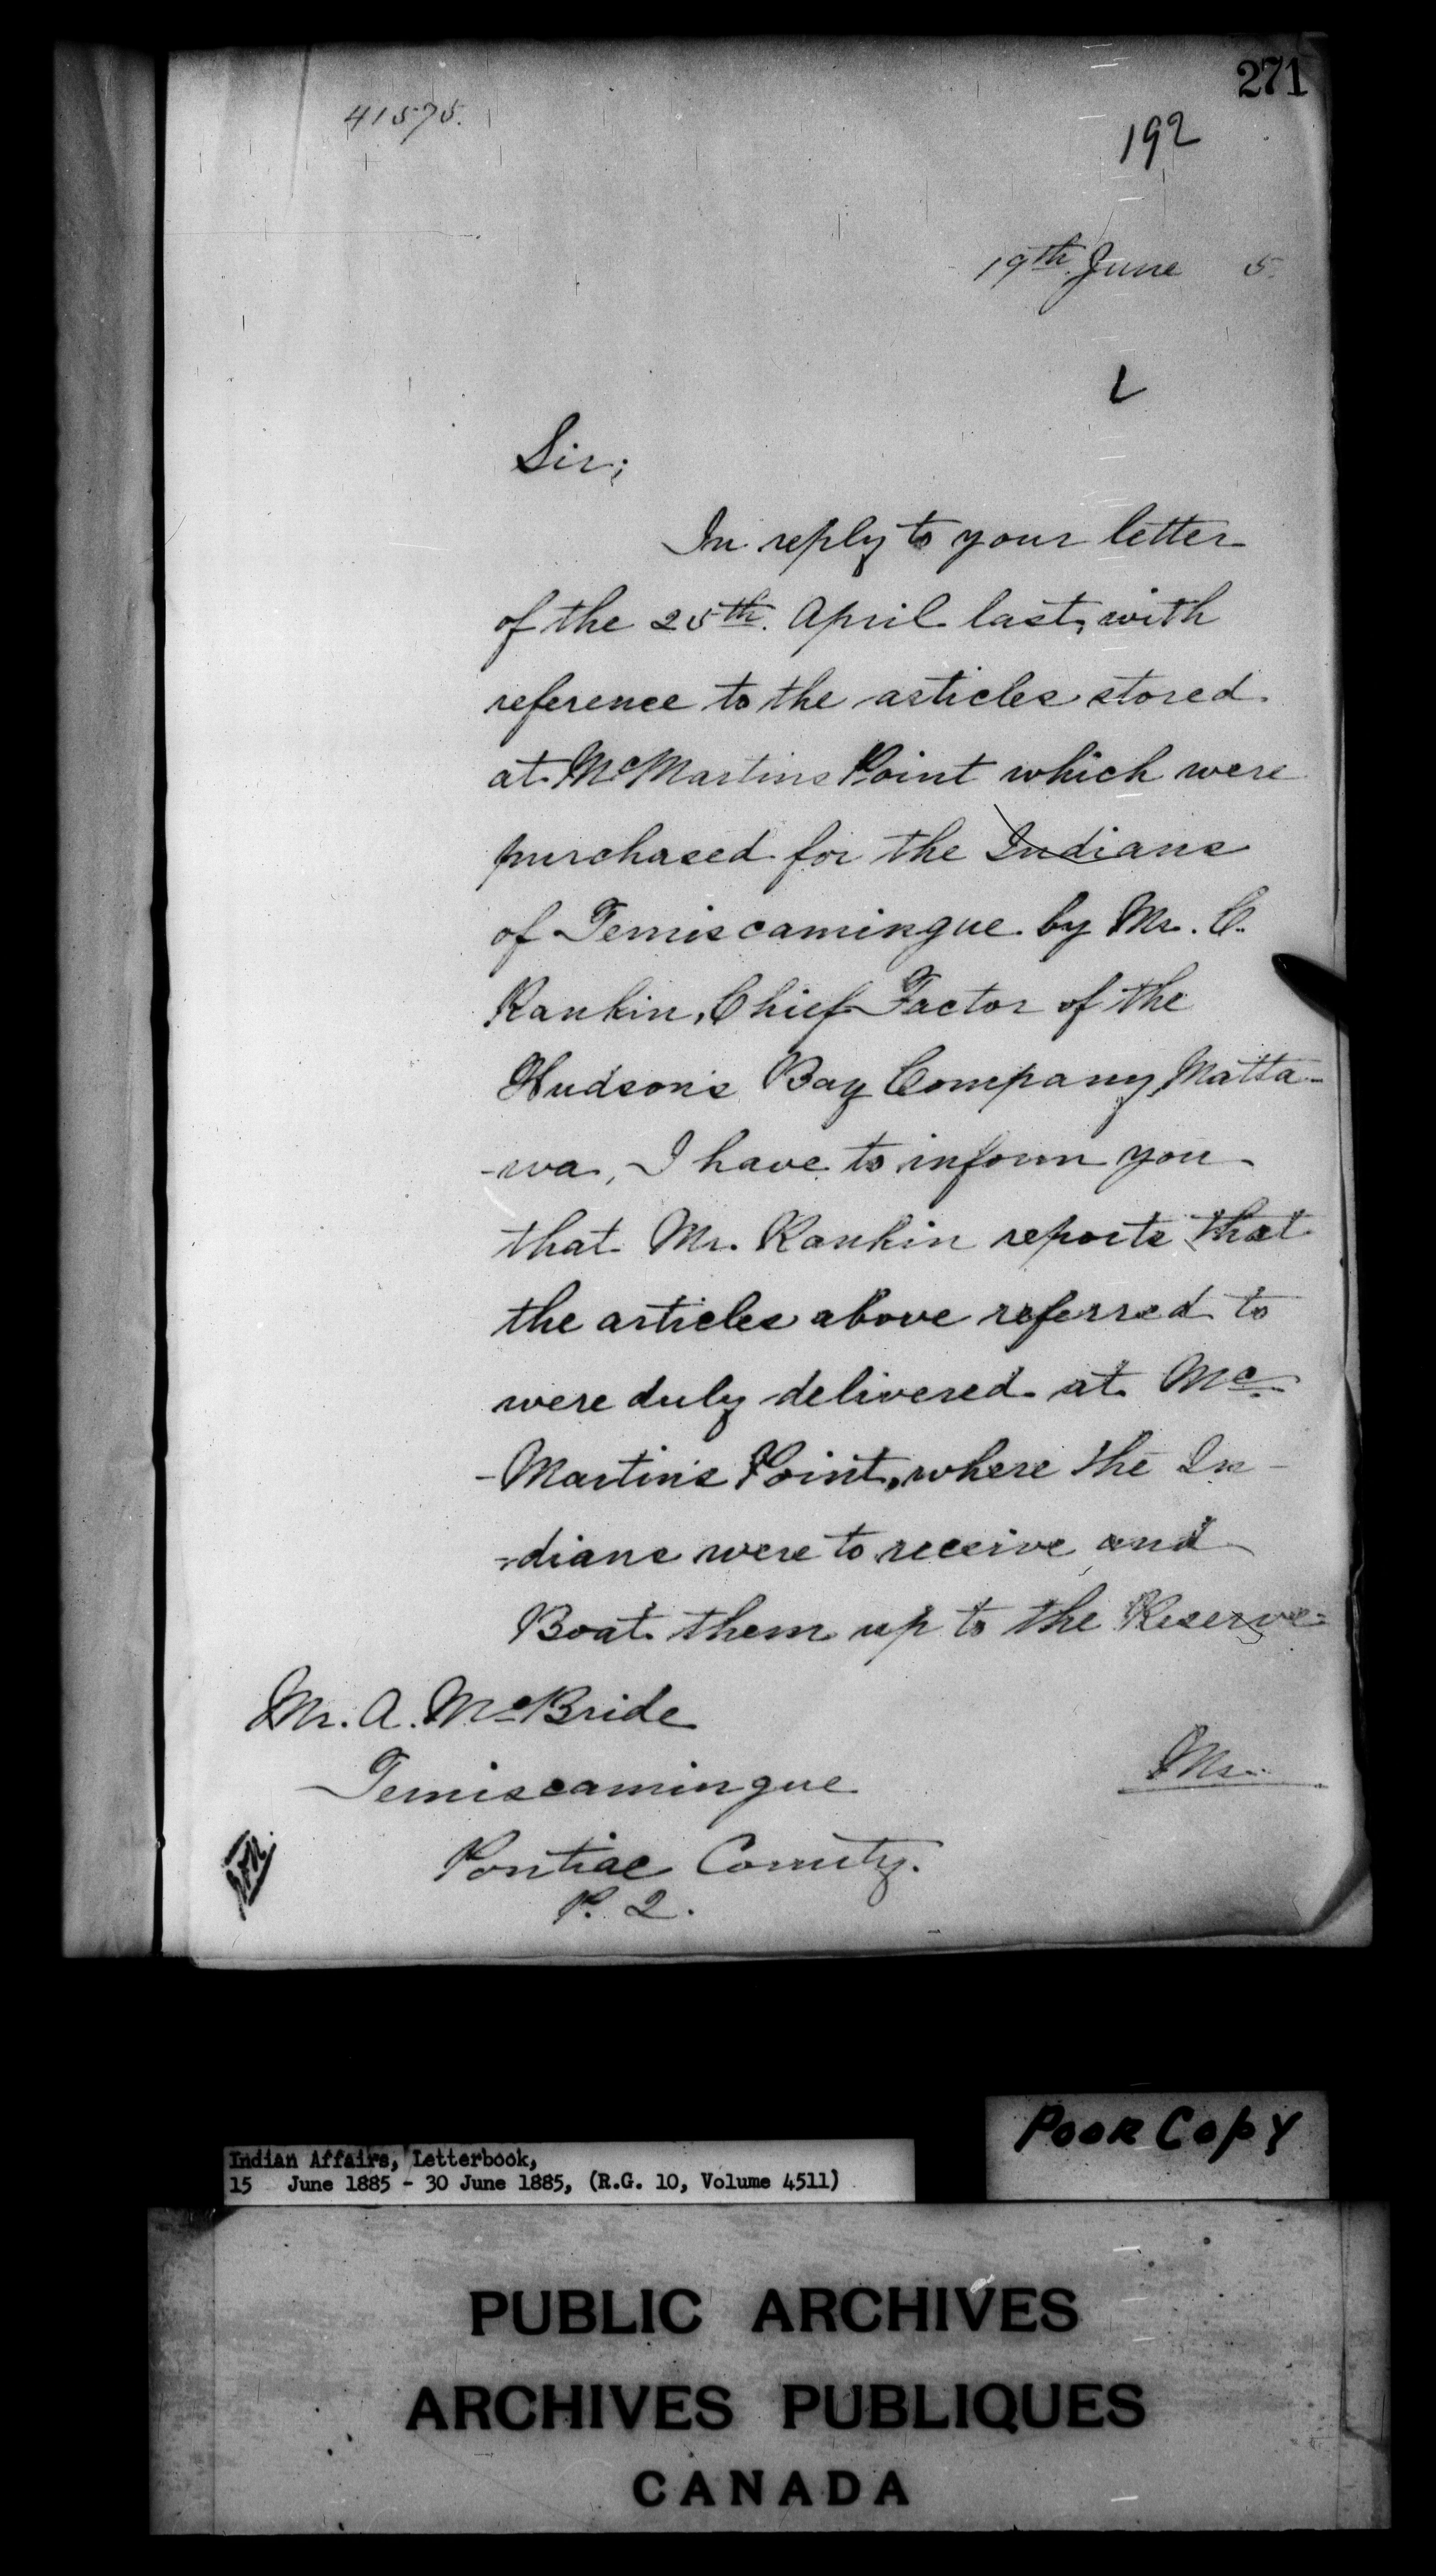 271
41575.
192
19th June 5.
Sir;
In reply to your letter
of the 25th. April last, with
reference to the articles stored
at McMartins Point which were
purchased for the Indians
of Temiscamingue by Mr. C.
Rankin, Chief Factor of the
Hudson's Bay Company Matta-
-wa, I have to inform you
that Mr. Rankin reports that
the articles above referred to
were duly delivered at Mc
-Martin's Point, where the In-
-dians were to receive and
Boat them up to the Reserve.
Mr. A. McBride
Temiscamingue
Pontiac County.
P. Q.
Mr.
Poor Copy
Indian Affairs, Letterbook,
15 June 1885 - 30 June 1885, (R.G. 10, Volume 4511)
PUBLIC ARCHIVES
ARCHIVES PUBLIQUES
CANADA